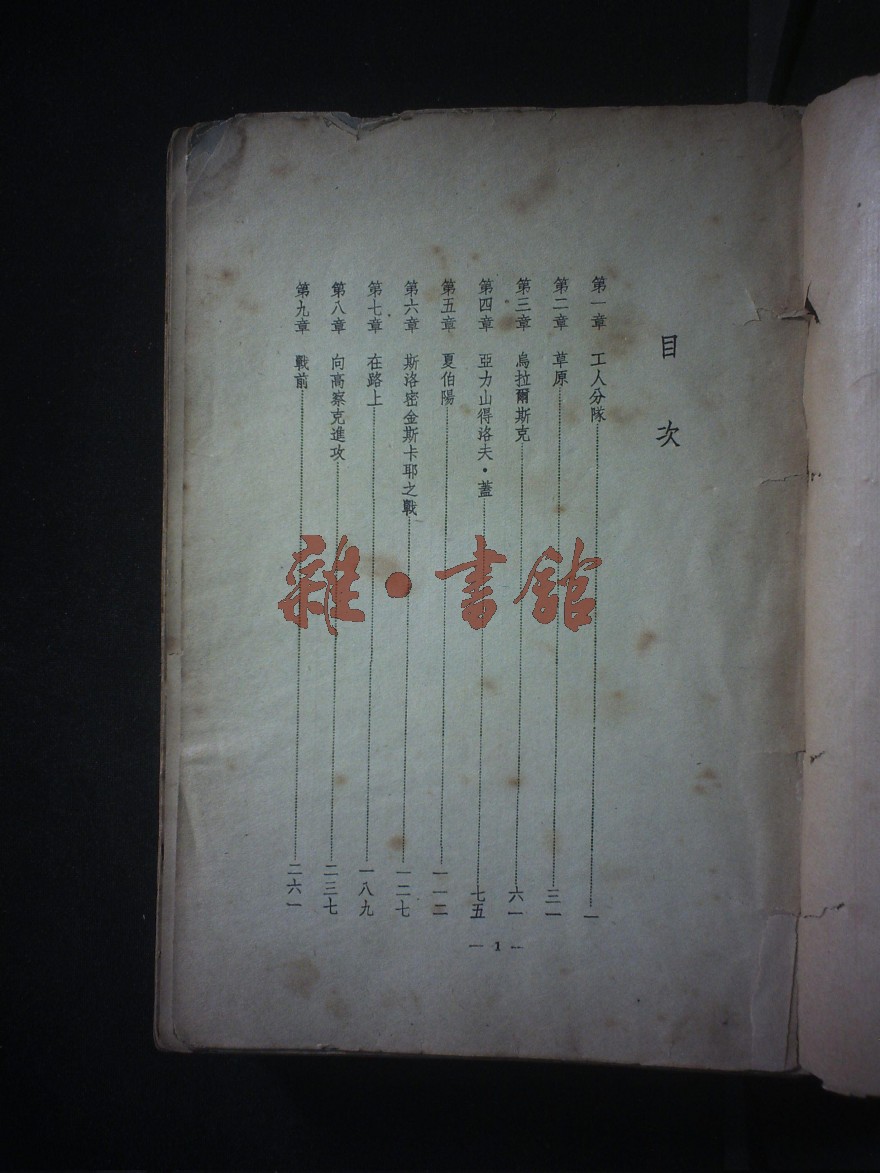 目次
第一章　工人分隊……一
第二章　草原……三一
第三章　烏拉爾斯克……六一
第四章　亞力山得洛夫・蓋……七五
第五章　夏伯陽……一一二
第六章　斯洛密金斯卡耶之戰……一二七
第七章　在路上……一八九
第八章　向高察克進攻……二三七
第九章　戰前……二六一
— 1 —
雜・書館